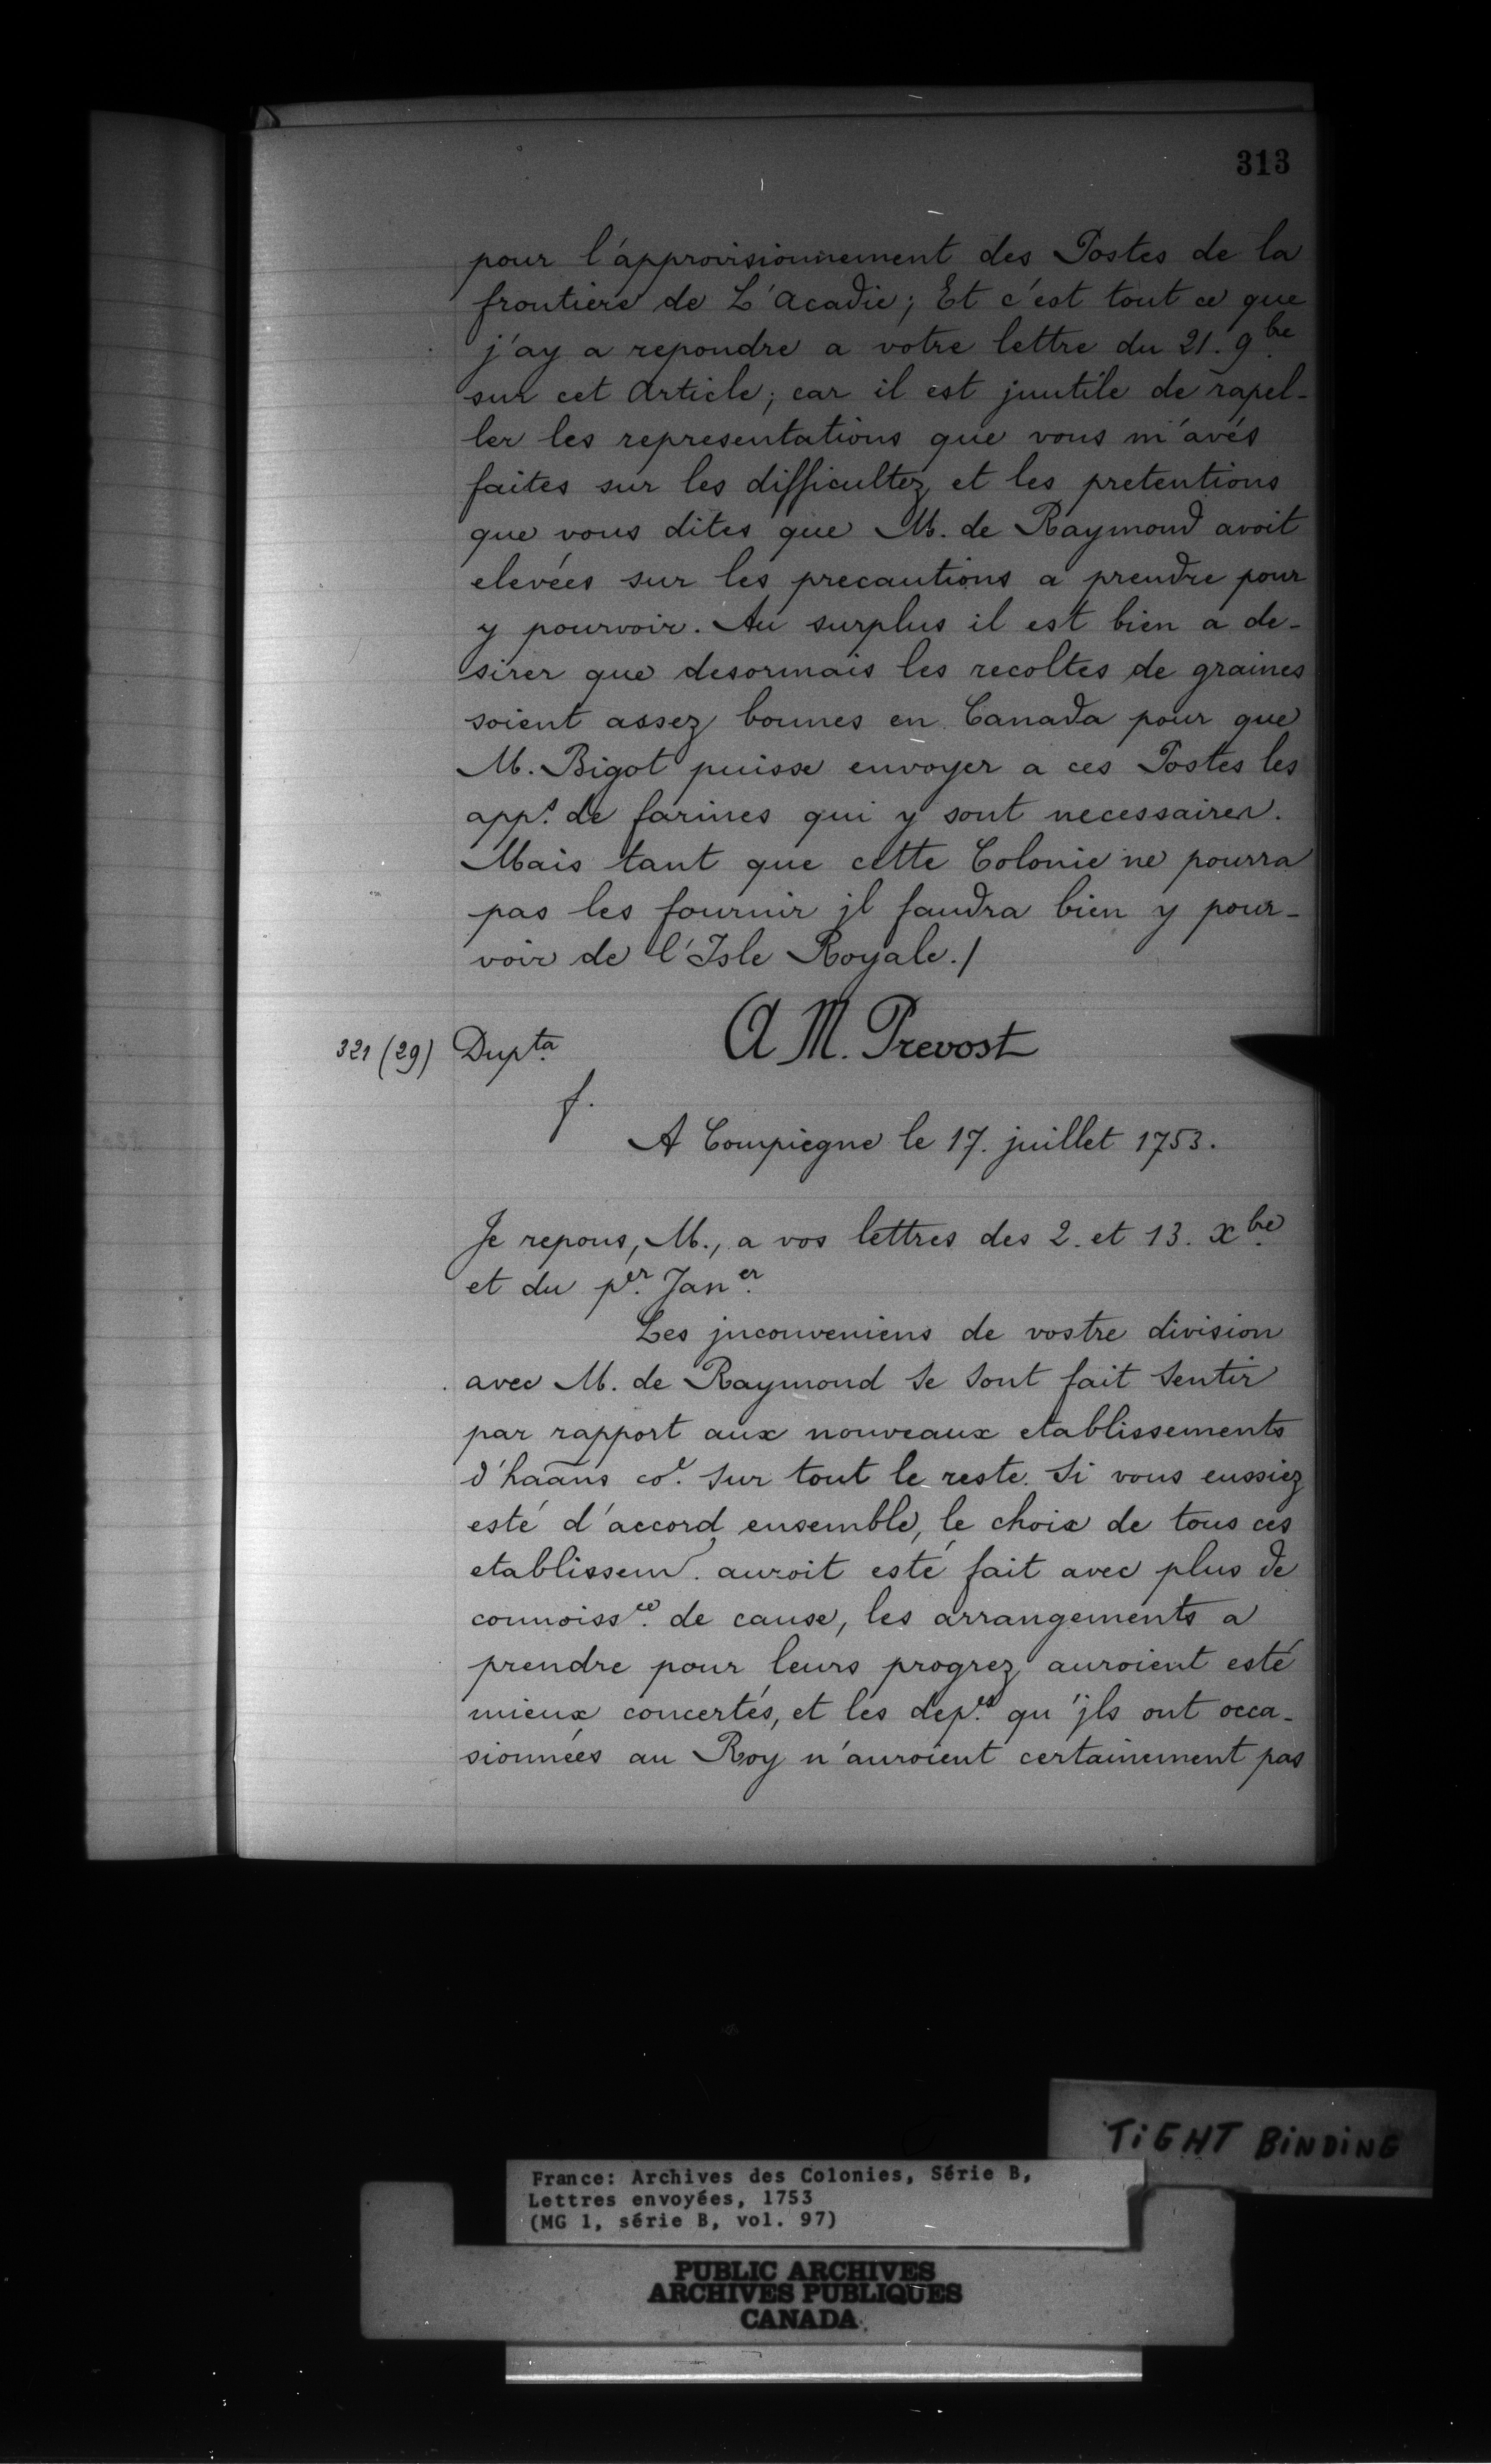 313
pour l'approvisionnement des Postes de la
frontiere de L'Acadie; Et c'est tout ce que
j'ay a repondre a votre lettre du 21. 9bre
sur cet Article; car il est jnutile de rapel-
ler les representations que vous m'avés
faites sur les difficultez et les pretentions
que vous dites que M. de Raymond avoit
elevées sur les precautions a prendre pour
y pourvoir. Au surplus il est bien a de-
sirer que desormais les recoltes de graines
soient assez bonnes en Canada pour que
M. Bigot puisse envoyer a ces Postes les
apps. de farines qui y sont necessaires.
Mais tant que cette Colonie ne pourra
pas les fournir jl faudra bien y pour-
voir de l'Isle Royale./
321 (29) Dupta. A M. Prevost
f.
A Compiegne le 17. juillet 1753.
Je repons, M., a vos lettres des 2. et 13. xbre
et du per. Janer.
Les jnconveniens de vostre division
avec M. de Raymond se sont fait sentir
par rapport aux nouveaux etablissements
d'haãns coe. sur tout le reste. Si vous eussiez
esté d'accord ensemble, le choix de tous ces
etablissem. auroit esté fait avec plus de
connoissce. de cause, les arrangements a
prendre pour leurs progrez auroient esté
mieux concertés, et les depes. qu'jls ont occa-
sionnées au Roy n'auroient certainement pas
TIGHT BINDING
France: Archives des Colonies, Série B,
Lettres envoyées, 1753
(MG 1, série B, vol. 97)
PUBLIC ARCHIVES
ARCHIVES PUBLIQUES
CANADA